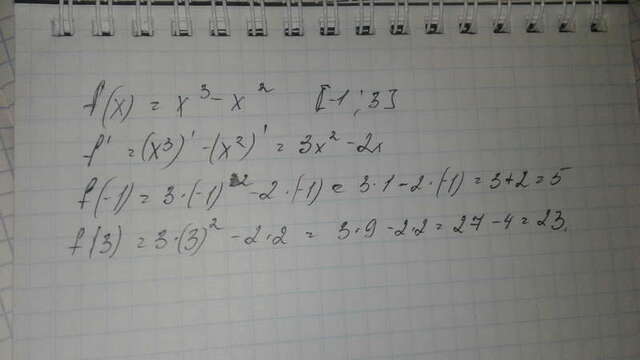 f(x) = x³ - x² [-1; 3]
f' = (x³)' - (x²)' = 3x² - 2x
f(-1) = 3·(-1)² - 2·(-1) = 3·1 - 2·(-1) = 3+2 = 5
f(3) = 3·(3)² - 2·2 = 3·9 - 2·2 = 27 - 4 = 23.